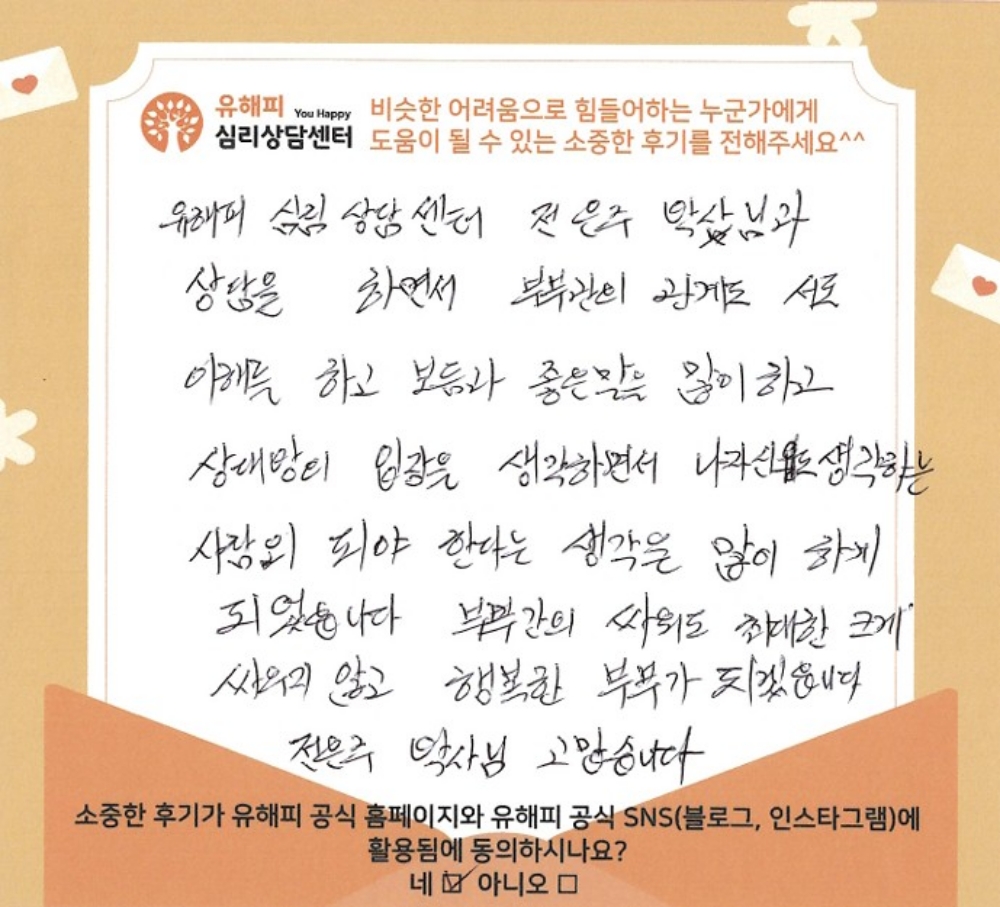 유해피
You Happy
심리상담센터
비슷한 어려움으로 힘들어하는 누군가에게
도움이 될 수 있는 소중한 후기를 전해주세요^^
유해피 심림 상담 센터 전은주 박삿님과
상담을 하면서 부부관의 관계도 서로
이해를 하고 보듬과 좋은말을 많이 하고
상대방의 입장을 생각하면서 나자신도 생각하는
사람외 되야 한다는 생각을 많이 하게
되었습니다 부부간의 싸워도 최대한 크게
싸우지 않고 행복한 부부가 되겠습니다
전은주 박사님 고맙습니다
소중한 후기가 유해피 공식 홈페이지와 유해피 공식 SNS(블로그, 인스타그램)에
활용됨에 동의하시나요?
네 ☑ 아니오 □